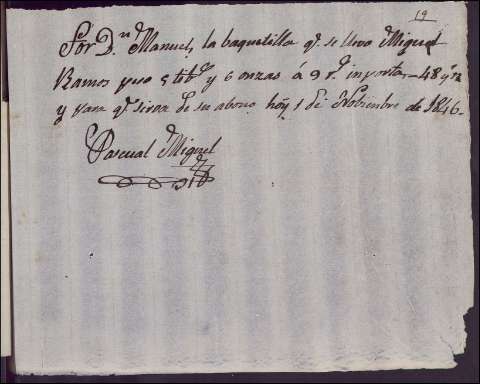 19
Por D.n Manuel, la baquetilla q.e se llevo Miguel
Ramos peso 5 lib.s y 6 onzas á 9 r.s importa, 48 y 12
y para q.e sirva de su abono hoy 1 de Nobiembre de 1846.
Pascual Miguel